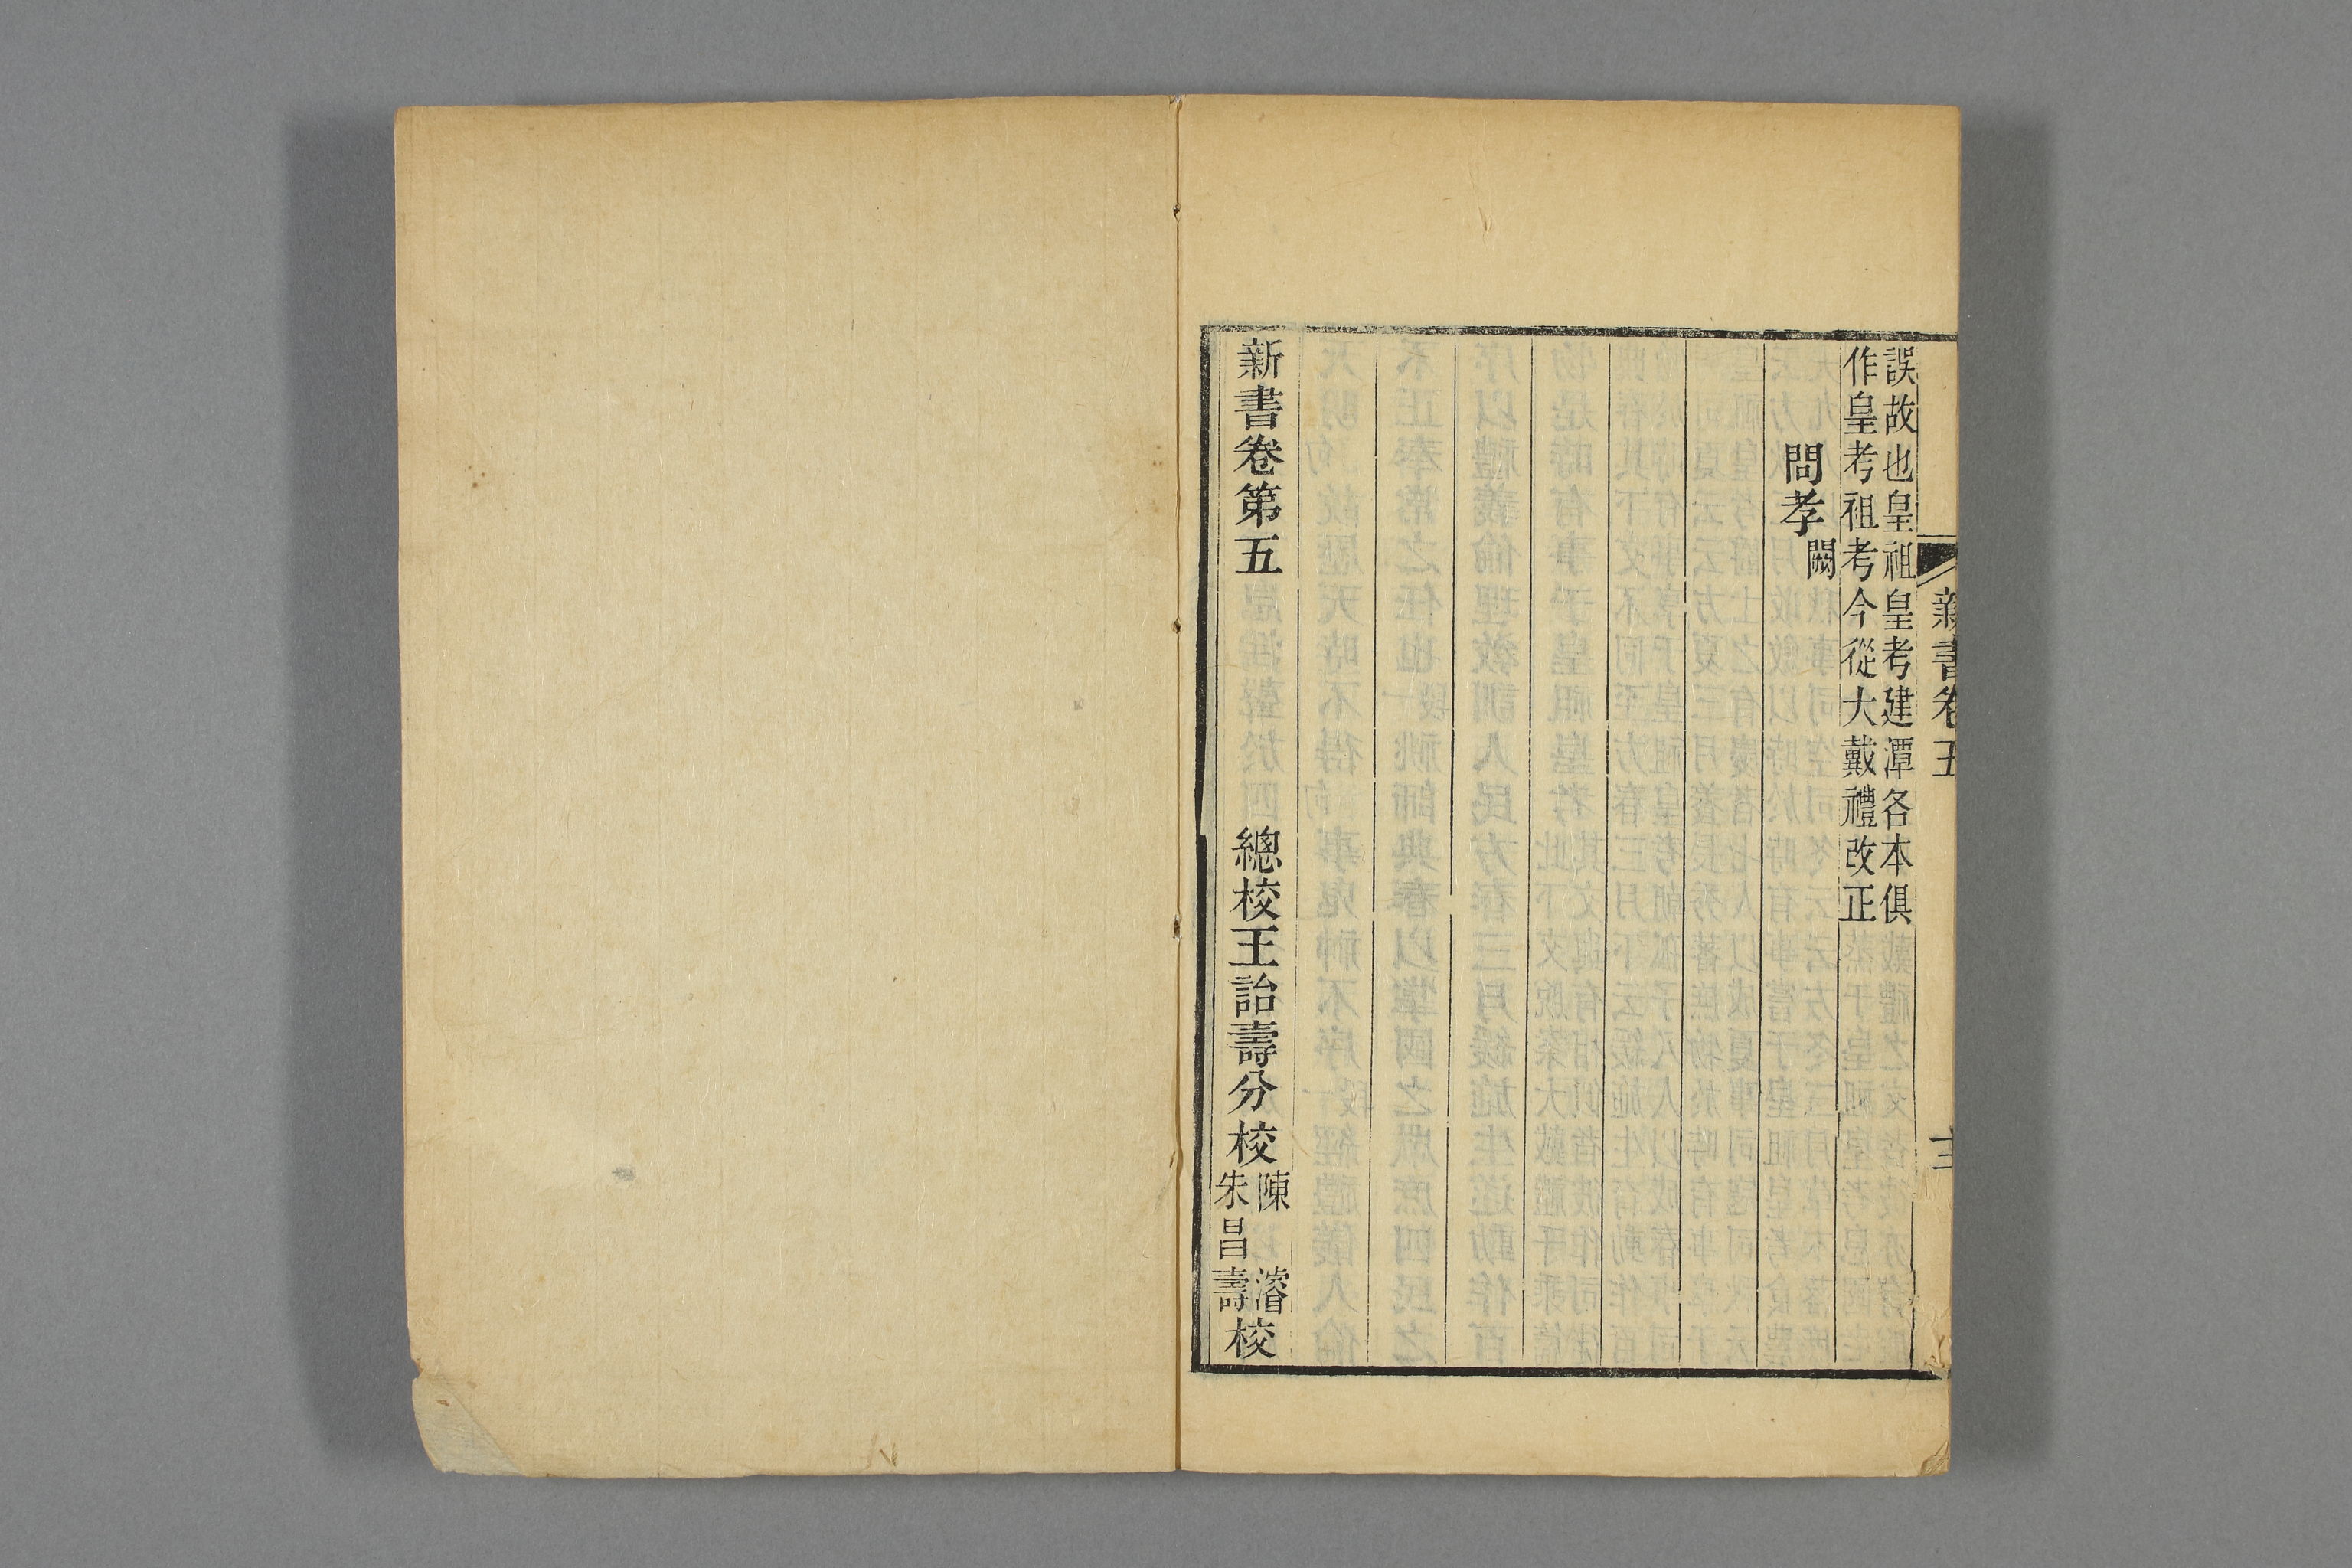 新書卷五
誤故也皇祖皇考建潭各本俱
作皇考祖考今從大戴禮改正
問孝闕
新書卷第五
總校王詒壽分校陳濬朱昌壽校